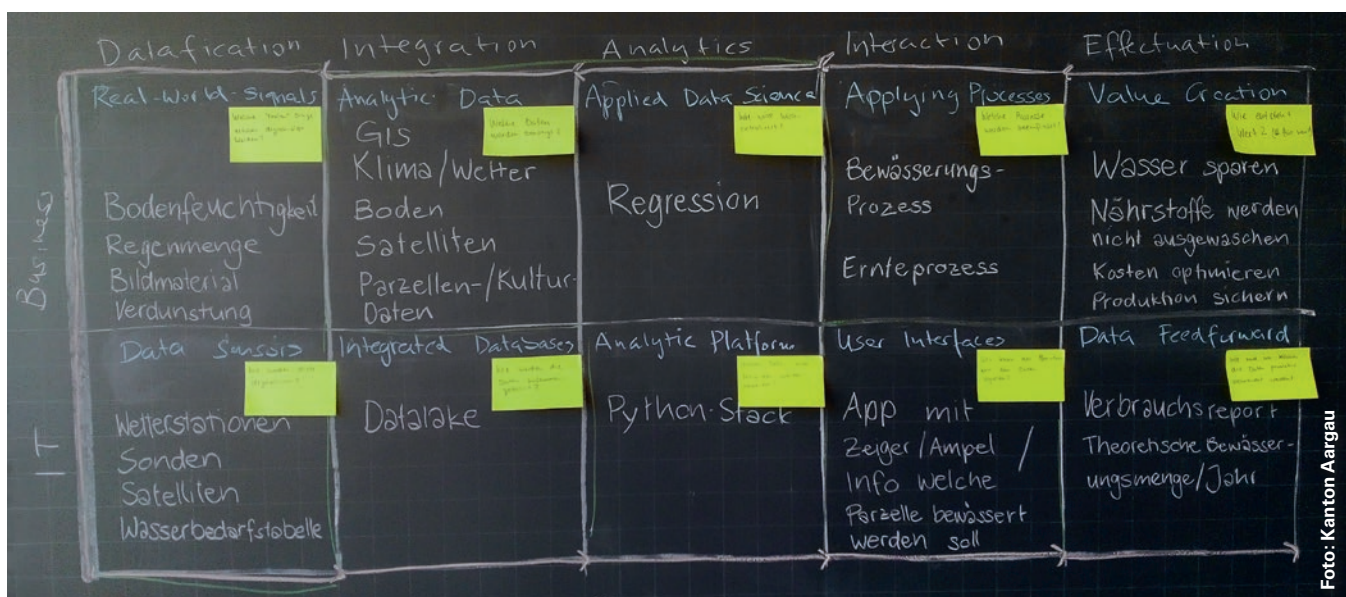 Datafication
Integration
Analytics
Interaction
Effectuation
Business
Real-World-Signals
Bodenfeuchtigkeit
Regenmenge
Bildmaterial
Verdunstung
Analytic Data
GIS
Klima/Wetter
Boden
Satelliten
Parzellen-/Kultur-
Daten
Welche Daten
werden benötigt?
Applied Data Science
Regression
Applying Processes
Bewässerungs-
Prozess
Ernteprozess
Value Creation
Wasser sparen
Nährstoffe werden
nicht ausgewaschen
Kosten optimieren
Produktion sichern
IT
Data Sensors
Wetterstationen
Sonden
Satelliten
Wasserbedarfstabelle
Integrated Databases
Datalake
Analytic Platform
Python-Stack
User Interfaces
App mit
Zeiger/Ampel /
Info welche
Parzelle bewässert
werden soll
Data Feedforward
Verbrauchsreport
Theoretische Bewässer-
ungsmenge/Jahr
Foto: Kanton Aargau